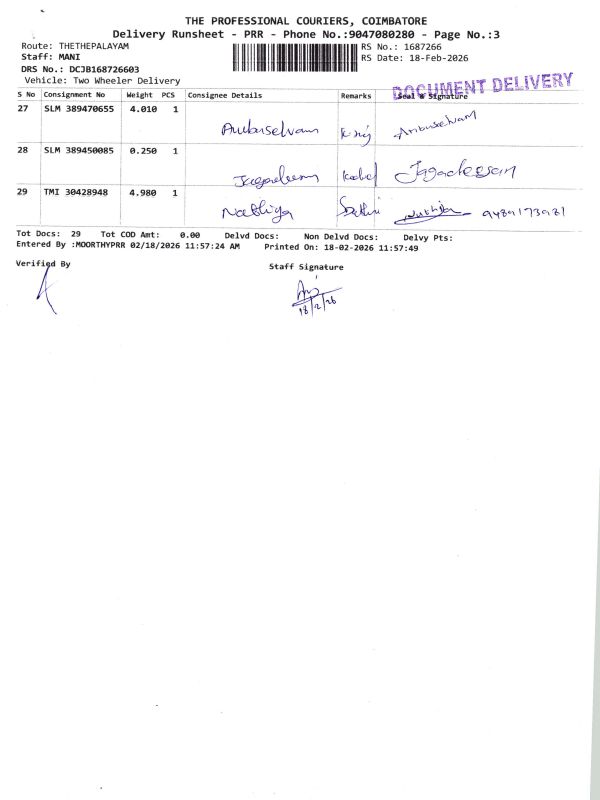 THE PROFESSIONAL COURIERS, COIMBATORE
Delivery Runsheet - PRR - Phone No.:9047080280 - Page No.:3
Route: THETHEPALAYAM
RS No.: 1687266
Staff: MANI
RS Date: 18-Feb-2026
DRS No.: DCJB168726603
Vehicle: Two Wheeler Delivery
DOCUMENT DELIVERY
S No Consignment No Weight PCS Consignee Details Remarks Seal & Signature
27 SLM 389470655 4.010 1
Anbuselvam Anbuselvam
28 SLM 389450085 0.250 1
Jagadeesan Jagadeesan
29 TMI 30428948 4.980 1
Nathiya 9489173981
Tot Docs: 29 Tot COD Amt: 0.00 Delvd Docs: Non Delvd Docs: Delvy Pts:
Entered By :MOORTHYPRR 02/18/2026 11:57:24 AM Printed On: 18-02-2026 11:57:49
Verified By
Staff Signature
18/2/26